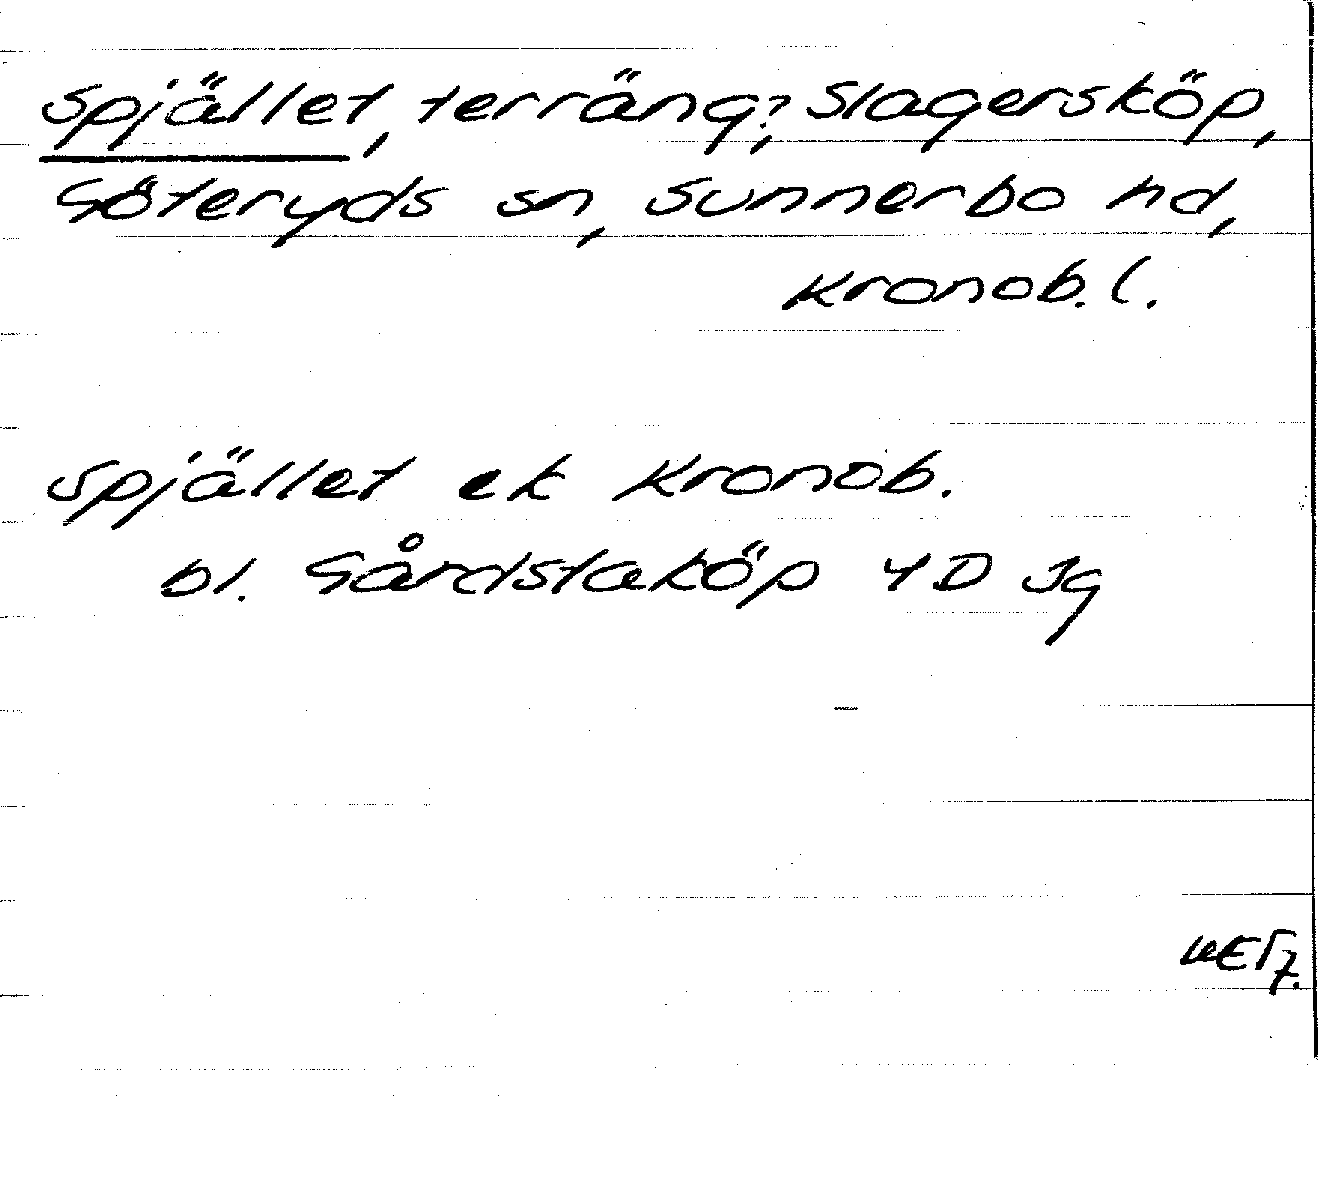 Spjället, terräng?, Slagersköp,
Göteryds sn, Sunnerbo hd,
Kronob. l.
Spjället ek Kronob.
bl. Gårdstaköp 4D Jg